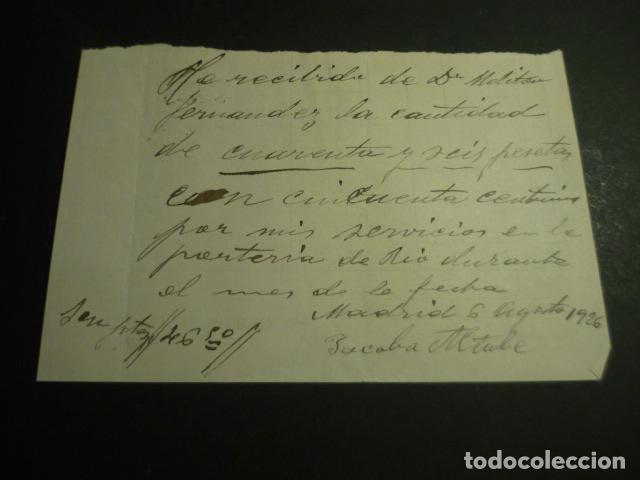 He recibido de Dn Meliton
Fernandez la cantidad
de cuarenta y seis pesetas
con cincuenta centimos
por mis servicios en la
porteria de Rio durante
el mes de la fecha
Madrid 6 Agosto 1926
Son ptas //46 50//
Jacoba Altube
todocoleccion
todocoleccion.net